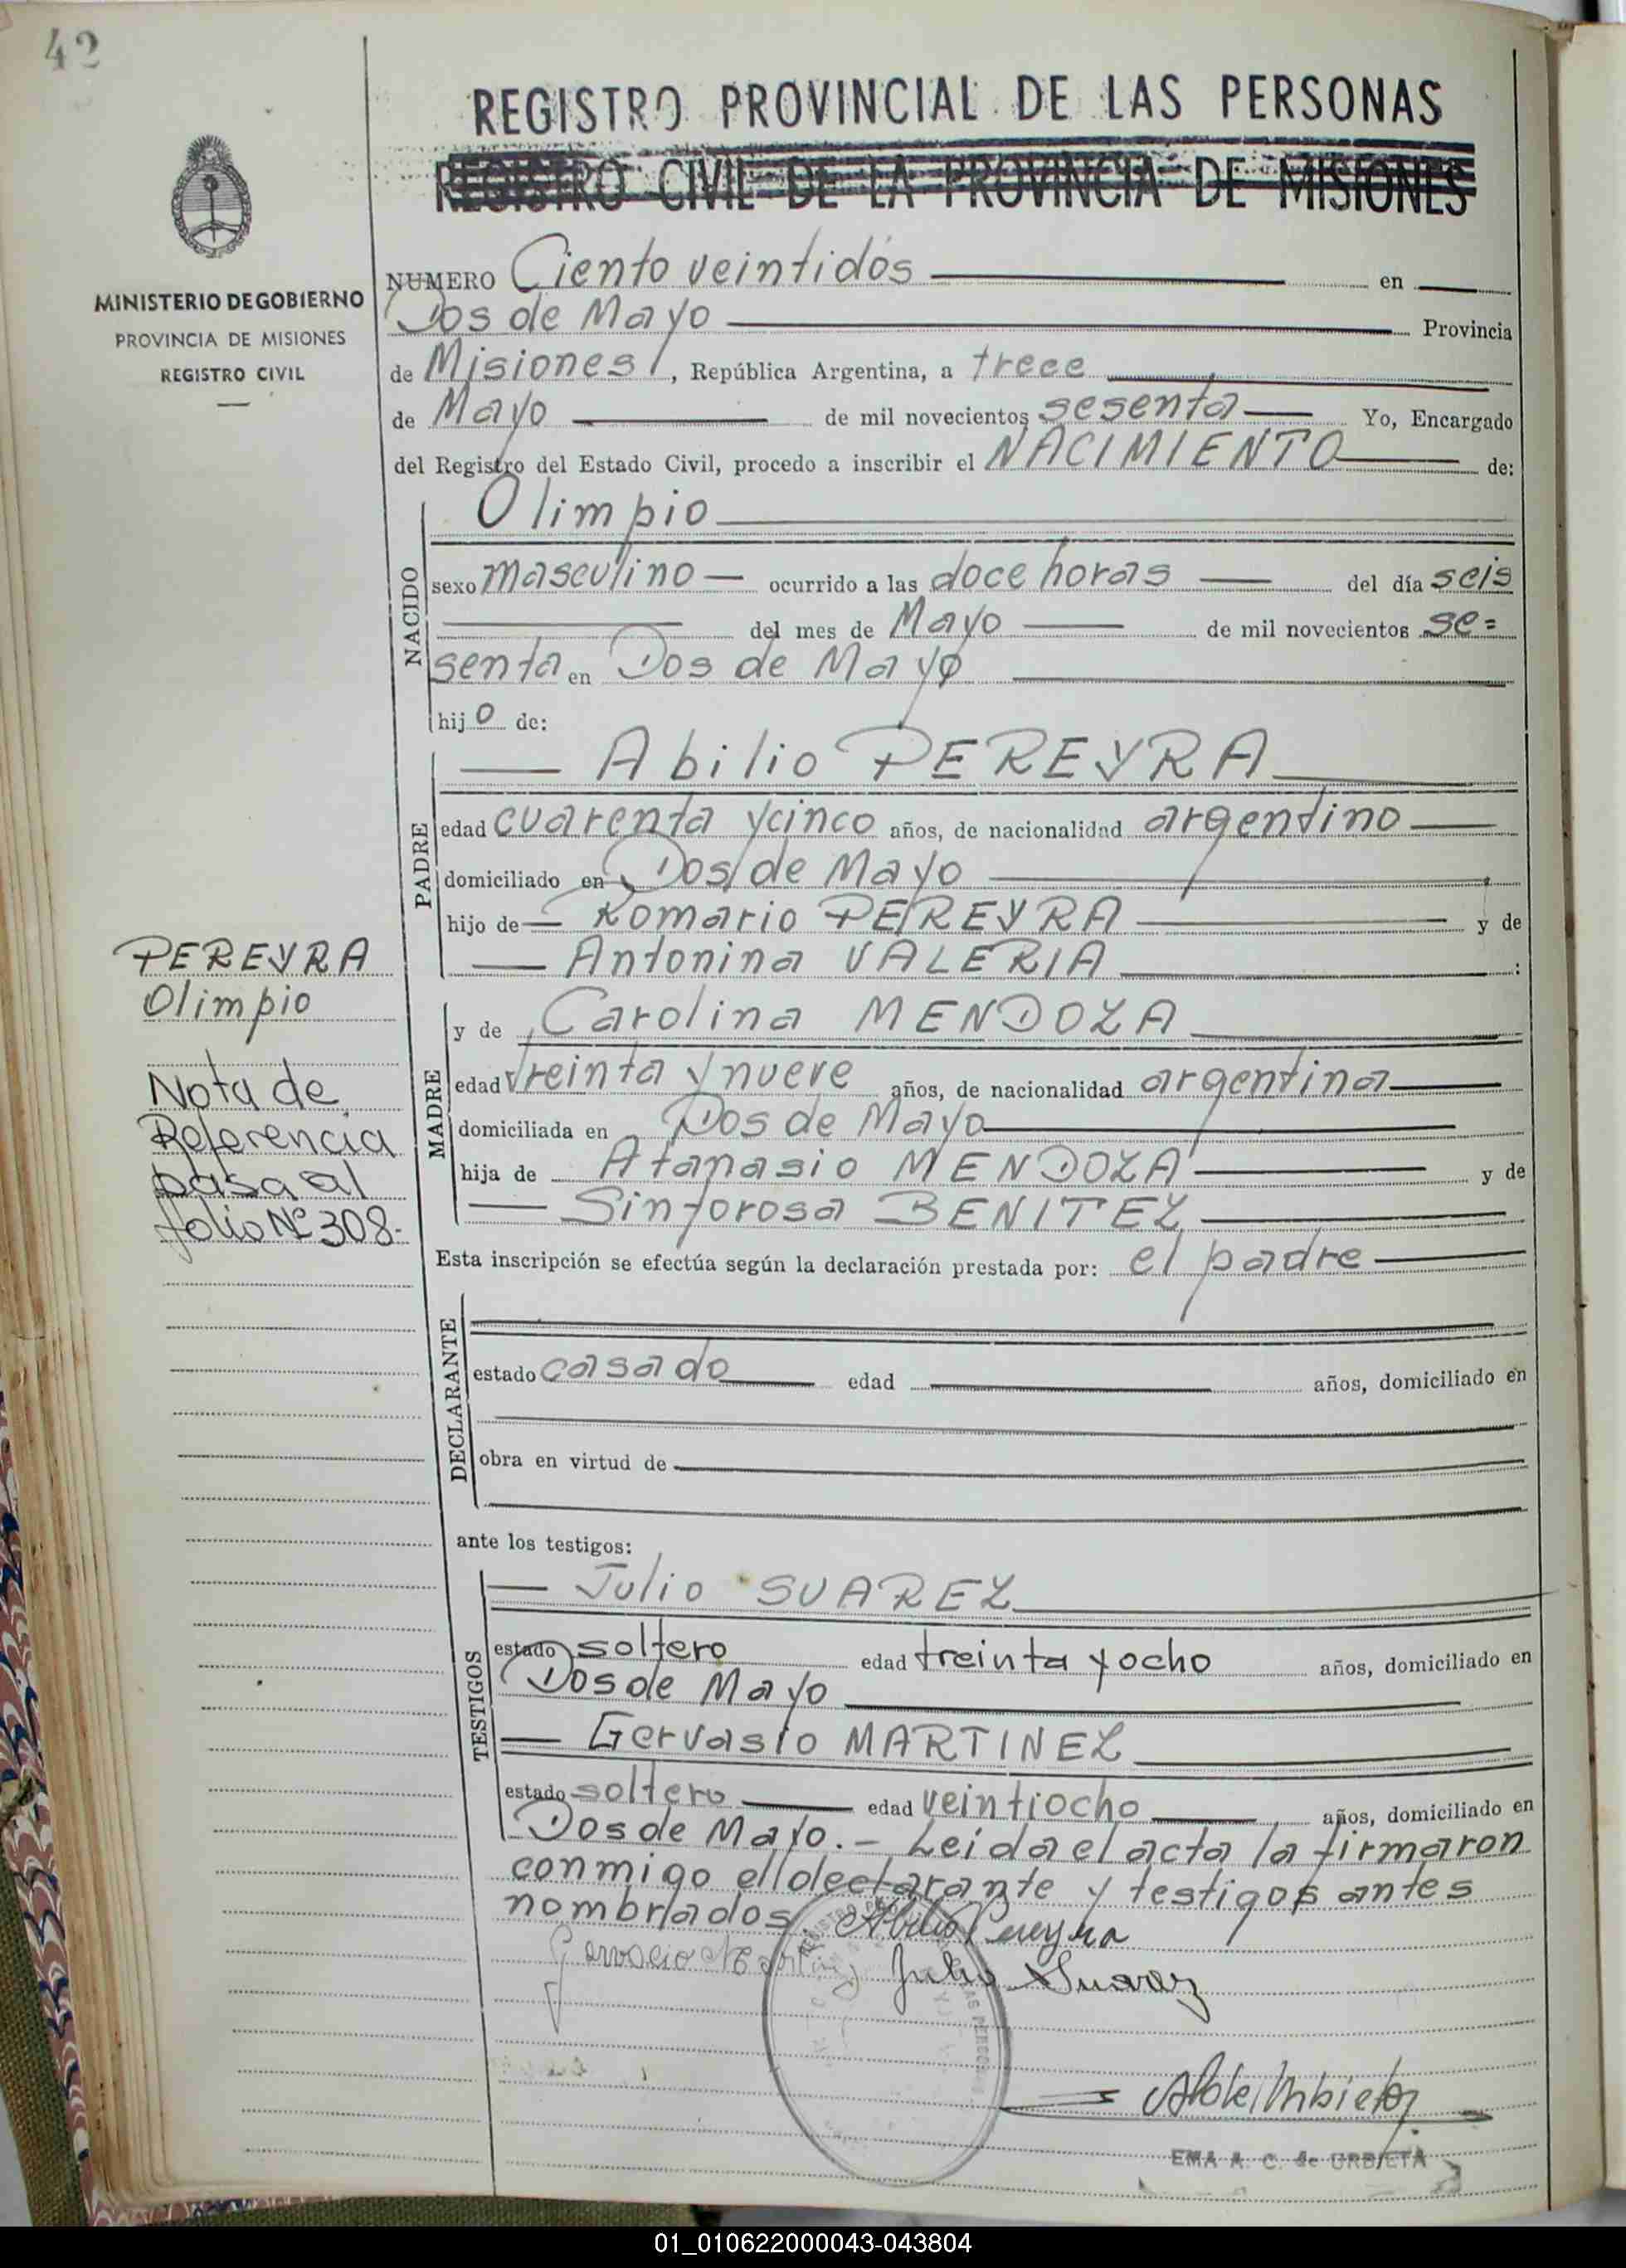 42
REGISTRO PROVINCIAL DE LAS PERSONAS
REGISTRO CIVIL DE LA PROVINCIA DE MISIONES
MINISTERIO DE GOBIERNO
PROVINCIA DE MISIONES
REGISTRO CIVIL
NUMERO Ciento veintidós en
Dos de Mayo Provincia
de Misiones, República Argentina, a trece
de Mayo de mil novecientos sesenta Yo, Encargado
del Registro del Estado Civil, procedo a inscribir el NACIMIENTO de:
NACIDO
Olimpio
sexo masculino — ocurrido a las doce horas — del día seis
del mes de Mayo — de mil novecientos se=
senta en Dos de Mayo
hijo de:
PADRE
Abilio PEREYRA
edad cuarenta y cinco años, de nacionalidad argentino
domiciliado en Dos de Mayo
hijo de — Romario PEREYRA y de
Antonina VALERIA :
PEREYRA
Olimpio
Nota de
Referencia
pasa al
folio Nº 308-
MADRE
y de Carolina MENDOZA
edad treinta y nueve años, de nacionalidad argentina
domiciliada en Dos de Mayo
hija de Atanasio MENDOZA y de
Sinforosa BENITEZ
Esta inscripción se efectúa según la declaración prestada por: el padre
DECLARANTE
estado casado edad años, domiciliado en
obra en virtud de
ante los testigos:
TESTIGOS
Julio SUAREZ
estado soltero edad treinta y ocho años, domiciliado en
Dos de Mayo
Gervasio MARTINEZ
estado soltero edad veintiocho años, domiciliado en
Dos de Mayo. - Leida el acta la firmaron
conmigo el declarante y testigos antes
nombrados. Abilio Pereyra
Gervacio Martinez Julio Suarez
EMA A. C. de URBIETA
01_010622000043-043804